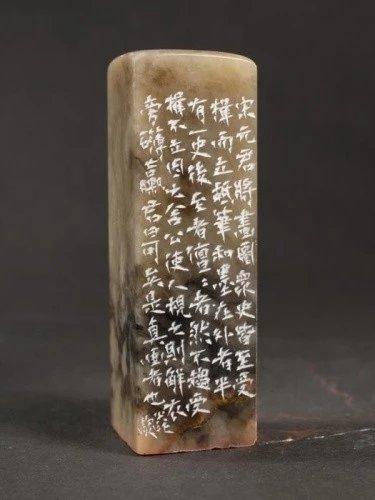 宋元君將畫圖眾史皆至受
揖而立舐筆和墨在外者半
有一史後至者儃〻者然不趨受
揖不立因之舍公使人視之則解衣
旁礴臝君曰可矣是真畫者也